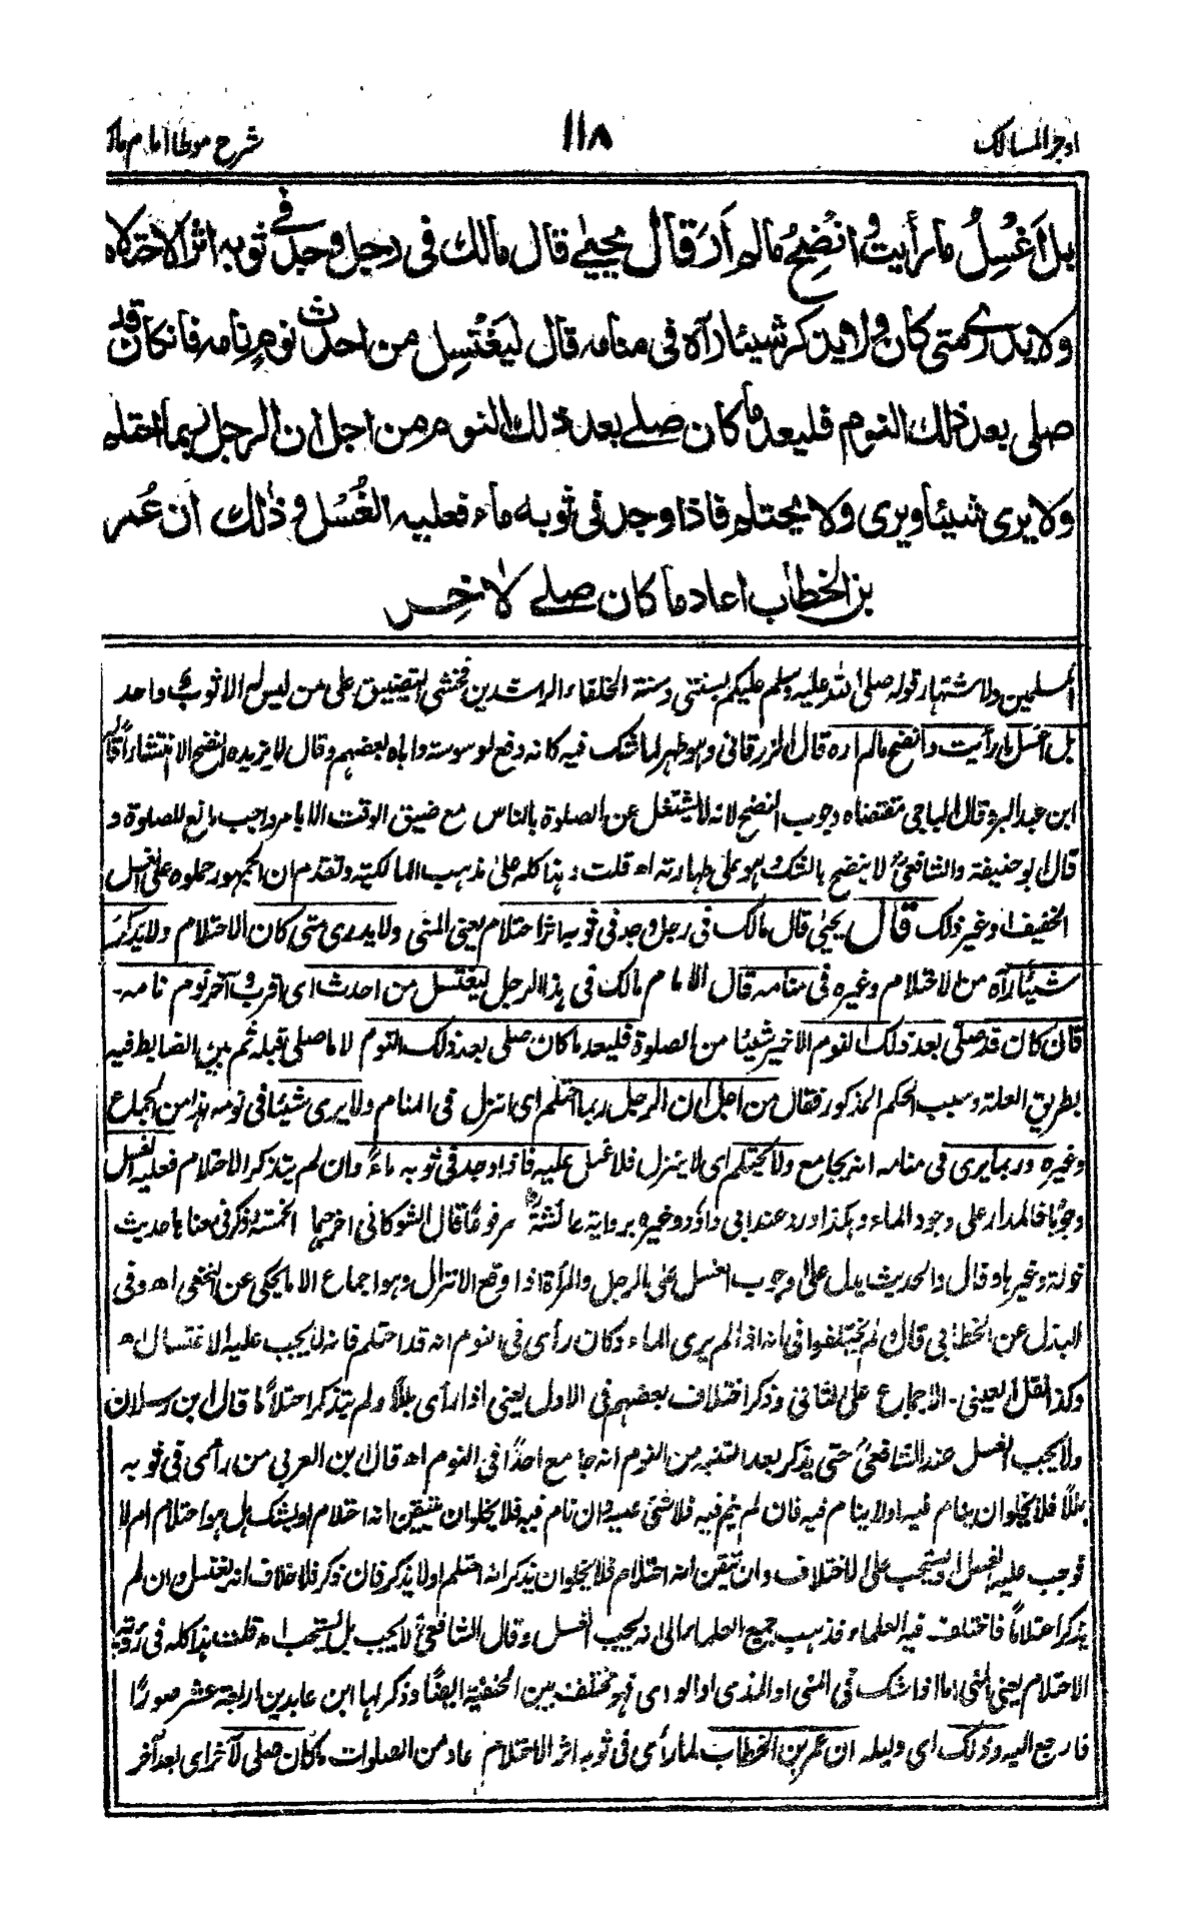 اوجز المسالك ١١٨ شرح موطا امام مالك
بل اَغْسِلُ ما رأيت و انضِحُ مالم اَرَ قال يحيىٰ قال مالك فى رجل وجد فى ثوبه اثر الاحتلام
ولا يدرى متى كان ولا يذكر شيئا رآه فى منامه قال ليَغْتَسِل من احدث نومٍ نامه فان كان قد
صلى بعد ذلك النوم فليعد ما كان صلے بعد ذلك النوم من اجل ان الرجل ربما احتلم
ولا يرى شيئا ويرى ولا يحتلم فاذا وجد فى ثوبه ماء فعليه الغُسْل و ذٰلك ان عُمر
بن الخطاب اعاد ما كان صلے لاٰخِر
المسلمين ولاشتهار قوله صلى الله عليه وسلم عليكم بسنتى وسنة الخلفاء الراشدين فخشى التضييق على من ليس له الا ثوب واحد
بل اغسل ما رأيت وانضح مالم اره قال الزرقانى وهو طهر لما شك فيه كانه دفع لوسوسة واباه بعضهم وقال لا يزيده النضح الا انتشارا قاله
ابن عبد البر وقال الباجى مقتضاه وجوب النضح لانه لا يشتغل عن الصلوة بالناس مع ضيق الوقت الا بامر واجب مانع للصلوة و
قال ابو حنيفة والشافعى لا ينضح بالشك وهو على طهارته اه قلت : هذا كله على مذهب المالكية وتقدم ان الجمهور حملوه على الغسل
الخفيف او غير ذلك قال يحيىٰ قال مالك فى رجل وجد فى ثوبه اثر احتلام يعنى المنى ولا يدرى متى كان الاحتلام ولا يذكر
شيئا رآه من الاحتلام وغيره فى منامه قال الامام مالك فى هذا الرجل ليغتسل من احدث اى اقرب وآخر نوم نامه۔
فان كان قد صلى بعد ذلك النوم الاخير شيئا من الصلوة فليعد ما كان صلى بعد ذلك النوم لا ما صلى قبله ثم بين الضابط فيه
بطريق العلة وسبب الحكم المذكور فقال من اجل ان الرجل ربما احتلم اى انزل فى المنام ولا يرى شيئا فى نومه هذا من الجماع
وغيره وربما يرى فى منامه انه يجامع ولا يحتلم اى لا ينزل فلا غسل عليه فاذا وجد فى ثوبه ماءً وان لم يتذكر الاحتلام فعليه الغسل
وجوبا فالمدار على وجود الماء وهكذا ورد عند ابى داؤد وغيره برواية عائشة مرفوعا قال الشوكانى اخرجها الخمسة وذكر فى معناها حديث
خولة وغيرها وقال والحديث يدل على وجوب الغسل على الرجل والمرأة اذا وقع الانزال وهو اجماع الا ما يحكى عن النخعى اه وفى
البذل عن الخطابى قال ولم يختلفوا فى انه اذا لم يرى الماء وكان رأى فى النوم انه قد احتلم فانه لا يجب عليه الاغتسال اه
وكذا نقل العينى الاجماع على الثانى وذكر اختلاف بعضهم فى الاول يعنى اذا رأى بللا ولم يتذكر احتلاما قال ابن رسلان
ولا يجب الغسل عند الشافعى حتى يذكر بعد التنبه من النوم انه جامع احدًا فى النوم اه قال ابن العربى من رأى فى ثوبه
بللًا فلا يخلو ان ينام فيه اولا ينام فيه فان لم ينم فيه فلا شئ عليه وان نام فيه فلا يخلو ان يتيقن انه احتلام او يشك هل هو احتلام ام لا
فوجب عليه الغسل او يستحب على الاختلاف وان تيقن انه احتلام فلا يخلو ان يذكر انه احتلم اولا يذكر فان ذكر فلا خلاف انه يغتسل وان لم
يذكر احتلامًا فاختلف فيه العلماء فذهب جميع العلماء الى انه يجب الغسل وقال الشافعى لا يجب بل يستحب اه قلت هذا كله فى رؤية
الاحتلام يعنى المنى اما اذا شك فى المنى او المذى او الودى فهو مختلف بين الحنفية ايضًا وذكر لها ابن عابدين اربعة عشر صورًا
فارجع اليه وذلك اى دليله ان عمر بن الخطاب لما رأى فى ثوبه اثر الاحتلام عاد من الصلوات ما كان صلى لآخر اى بعد آخر